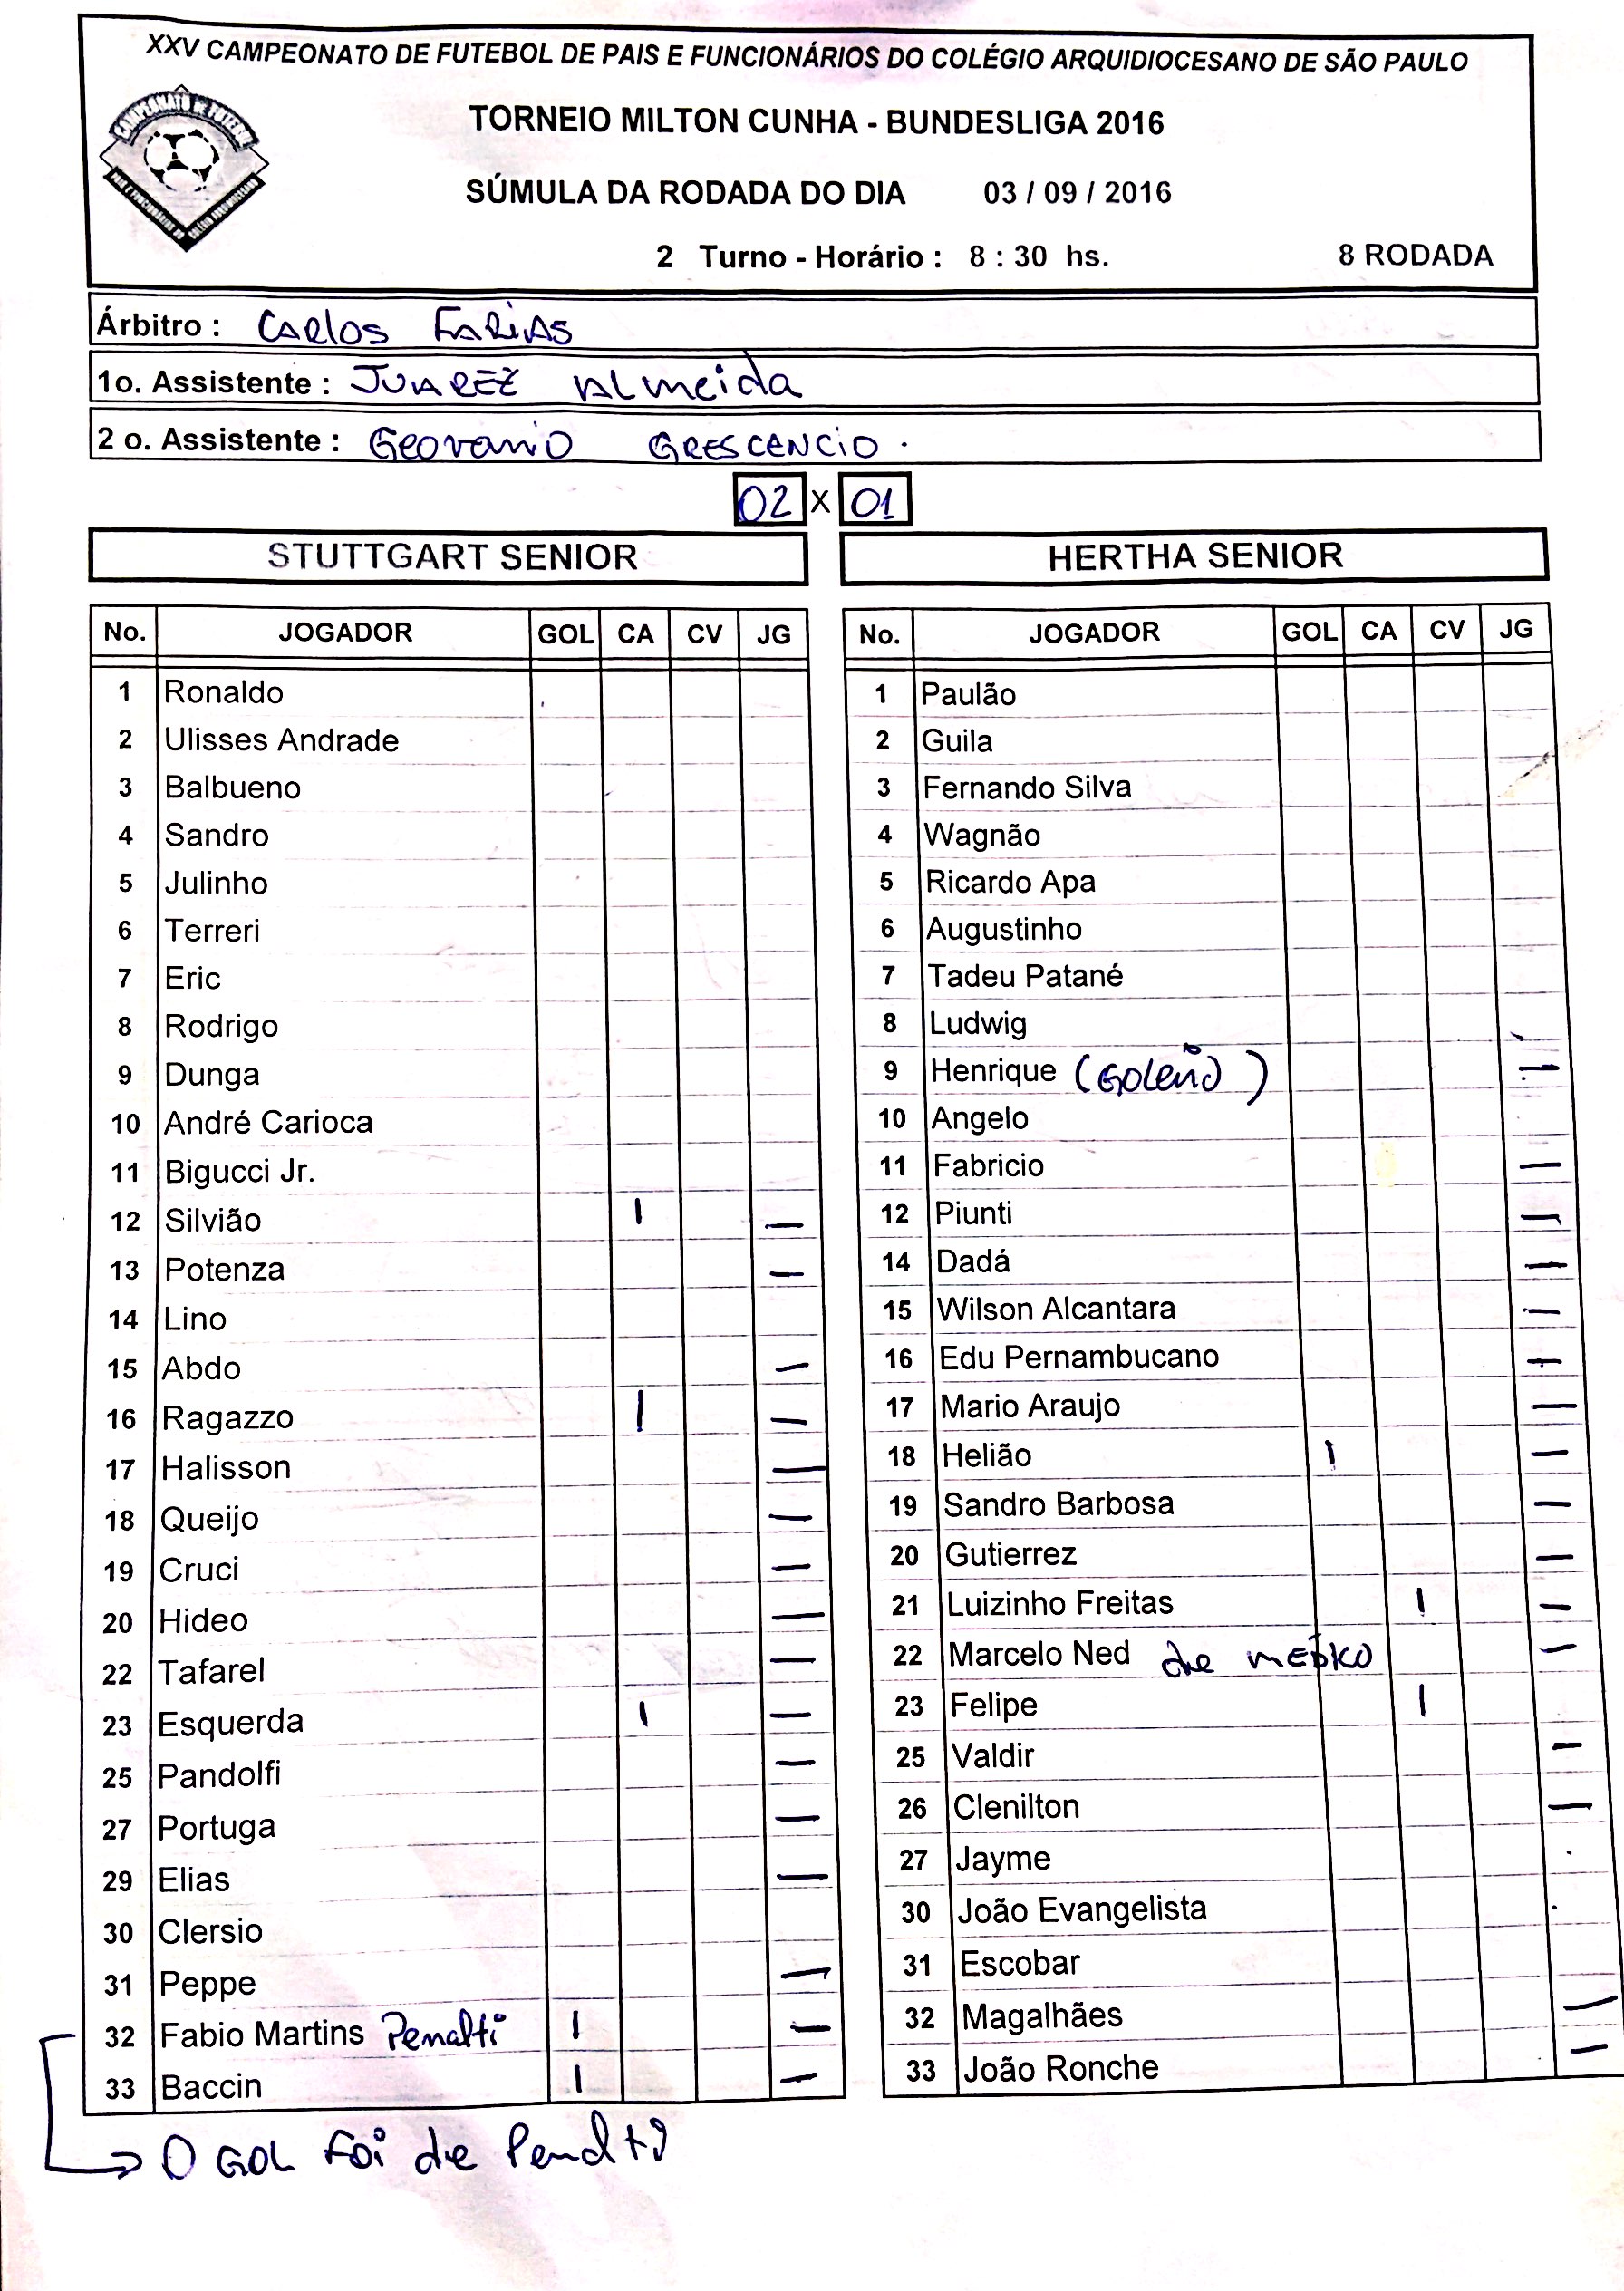 XXV CAMPEONATO DE FUTEBOL DE PAIS E FUNCIONÁRIOS DO COLÉGIO ARQUIDIOCESANO DE SÃO PAULO
CAMPEONATO DE FUTEBOL
TORNEIO MILTON CUNHA - BUNDESLIGA 2016
SÚMULA DA RODADA DO DIA 03 / 09 / 2016
2 Turno - Horário : 8 : 30 hs. 8 RODADA
Árbitro : CARLOS FARIAS
1o. Assistente : JUAREZ ALMEIDA
2 o. Assistente : GEOVANIO GRESCENCIO.
02 X 01
STUTTGART SENIOR
No. JOGADOR GOL CA CV JG
1 Ronaldo
2 Ulisses Andrade
3 Balbueno
4 Sandro
5 Julinho
6 Terreri
7 Eric
8 Rodrigo
9 Dunga
10 André Carioca
11 Bigucci Jr.
12 Silvião I —
13 Potenza —
14 Lino
15 Abdo —
16 Ragazzo I —
17 Halisson —
18 Queijo —
19 Cruci —
20 Hideo —
22 Tafarel —
23 Esquerda I —
25 Pandolfi —
27 Portuga —
29 Elias —
30 Clersio
31 Peppe —
32 Fabio Martins Penalti I —
33 Baccin I —
O GOL FOI de Penalti
HERTHA SENIOR
No. JOGADOR GOL CA CV JG
1 Paulão
2 Guila
3 Fernando Silva
4 Wagnão
5 Ricardo Apa
6 Augustinho
7 Tadeu Patané
8 Ludwig
9 Henrique (GOLEIRO) —
10 Angelo
11 Fabricio —
12 Piunti —
14 Dadá —
15 Wilson Alcantara —
16 Edu Pernambucano —
17 Mario Araujo —
18 Helião I —
19 Sandro Barbosa —
20 Gutierrez —
21 Luizinho Freitas I —
22 Marcelo Ned —
23 Felipe I
25 Valdir —
26 Clenilton —
27 Jayme
30 João Evangelista
31 Escobar
32 Magalhães —
33 João Ronche —